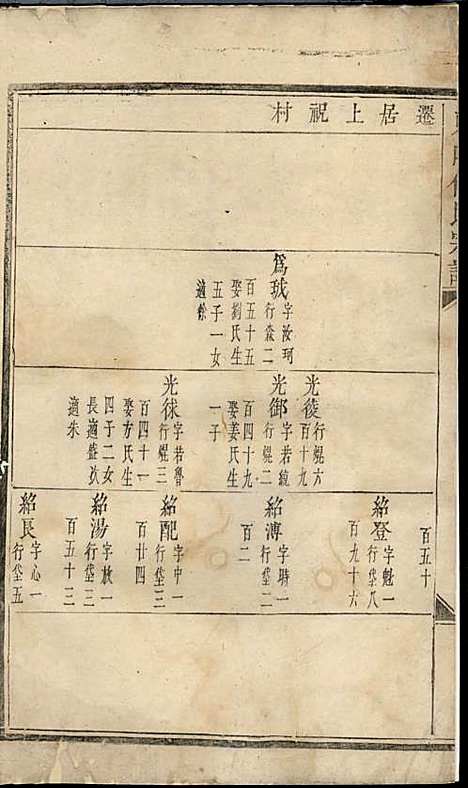 遷居上祝村
爲珬字汝珂
行森二
百五十五
娶劉氏生
五子一女
適徐
光後行焜六
百十九
光御字若統
行焜二
百四十九
娶姜氏生
一子
光俅字若魯
行焜三
百四十一
娶方氏生
四子二女
長適
適朱
百五十
紹登字魁一
行垈八
百九十六
紹溥字時一
行垈二
百二
紹配字中一
行垈三
百廿四
紹湯字放一
行垈三
百五十三
紹長字心一
行垈五